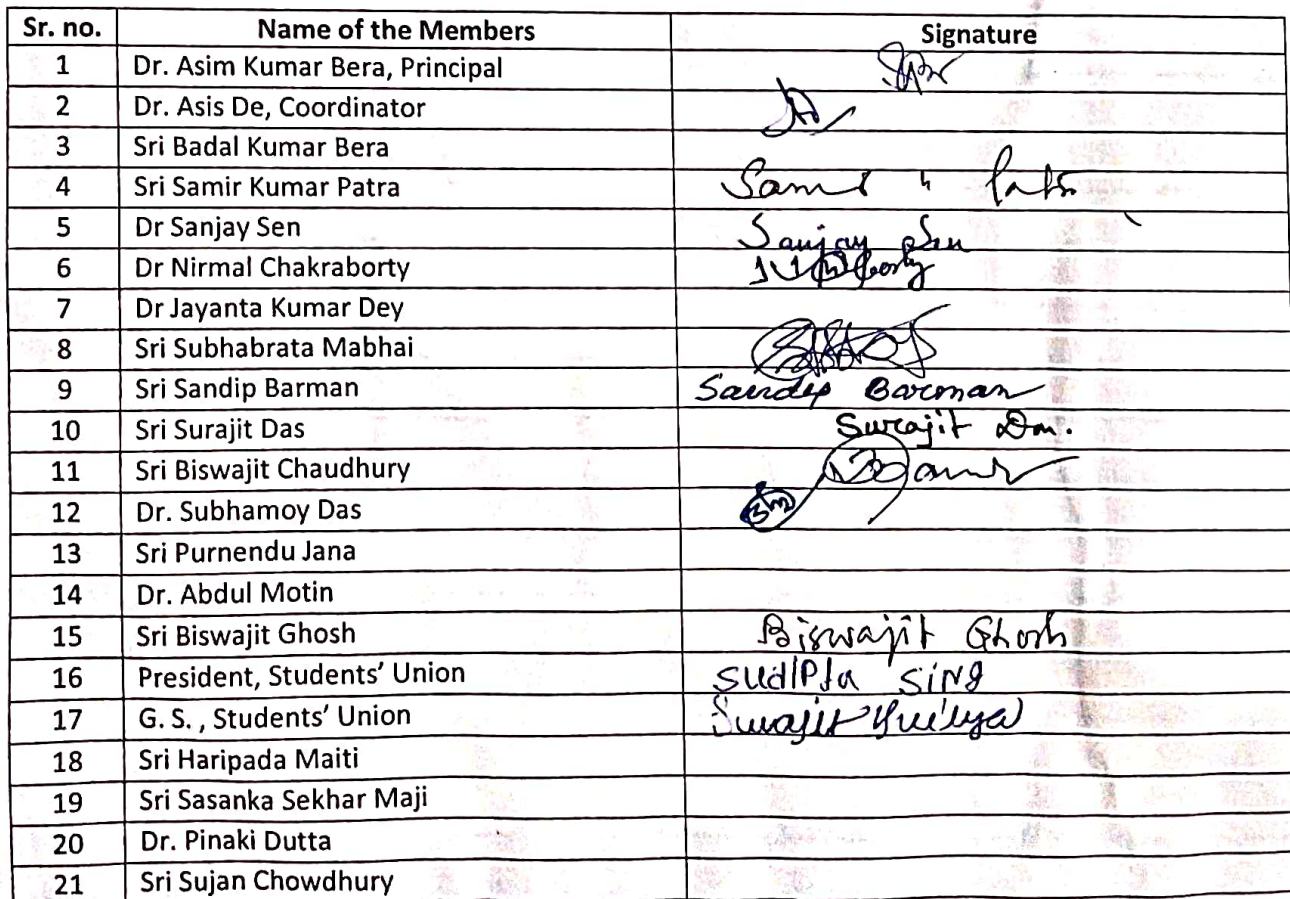 Sr. no. Name of the Members Signature
1 Dr. Asim Kumar Bera, Principal
2 Dr. Asis De, Coordinator
3 Sri Badal Kumar Bera
4 Sri Samir Kumar Patra
5 Dr Sanjay Sen Sanjay Sen
6 Dr Nirmal Chakraborty
7 Dr Jayanta Kumar Dey
8 Sri Subhabrata Mabhai
9 Sri Sandip Barman Sandip Barman
10 Sri Surajit Das Surajit
11 Sri Biswajit Chaudhury
12 Dr. Subhamoy Das
13 Sri Purnendu Jana
14 Dr. Abdul Motin
15 Sri Biswajit Ghosh Biswajit Ghosh
16 President, Students' Union SUdIPta SiNg
17 G. S. , Students' Union
18 Sri Haripada Maiti
19 Sri Sasanka Sekhar Maji
20 Dr. Pinaki Dutta
21 Sri Sujan Chowdhury